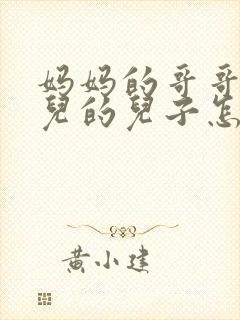 妈妈的哥哥
兒的兒子怎
黄小建